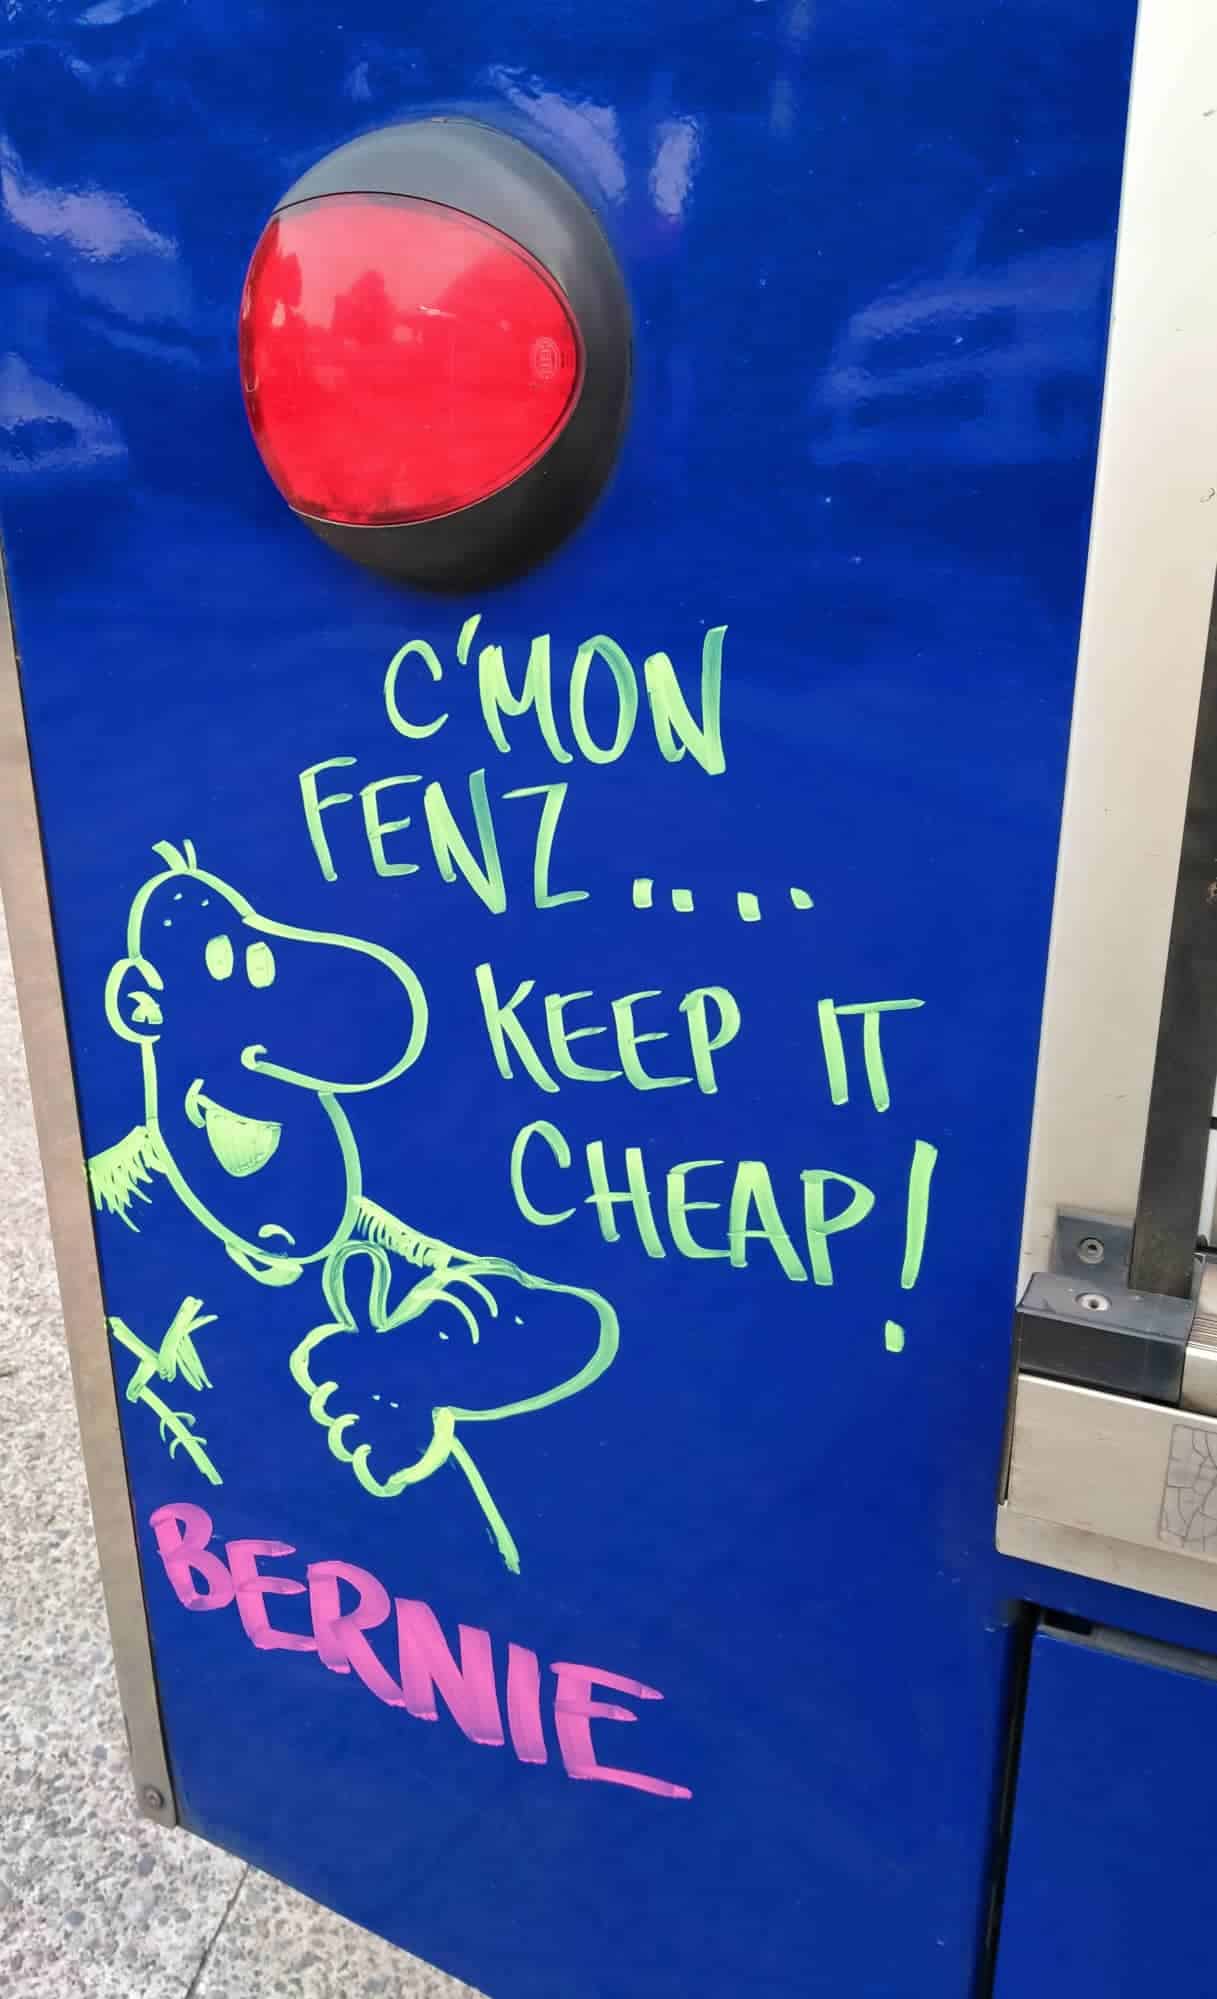 C'MON
FENZ....
KEEP IT
CHEAP!
BERNIE